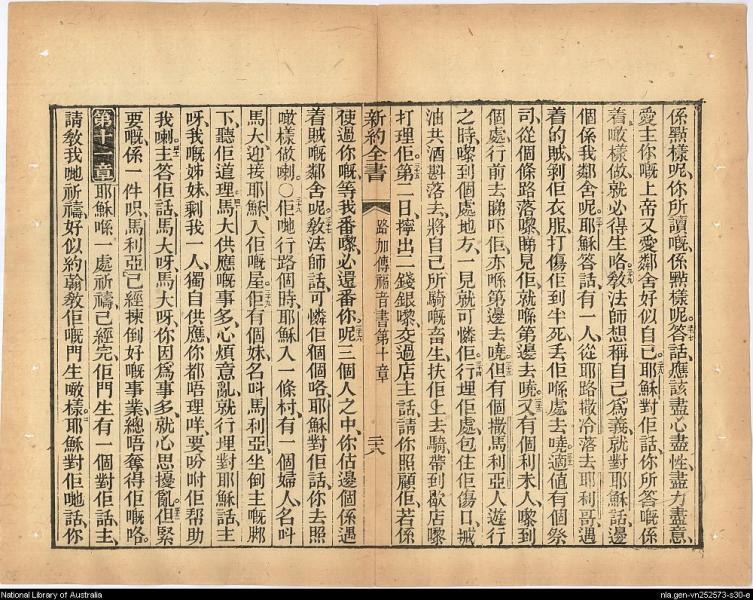 係點樣呢、你所讀嘅係點樣呢。答話、應該盡心盡性、盡力盡意、
愛主你嘅上帝又愛鄰舍好似自己。耶穌對佢話、你所答嘅係
着、噉樣做就必得生咯。教法師想稱自己爲義、就對耶穌話、邊
個係我鄰舍呢。耶穌答話、有一人、從耶路撒冷落去耶利哥、遇
着的賊、剝佢衣服、打傷佢到半死、丟佢喺處去嘵。適值有個祭
司、從個條路落嚟、睇見佢、就喺第邊去嘵。又有個利未人、嚟到
個處、行前去睇吓佢、亦喺第邊去嘵。但有個撒馬利亞人、遊行
之時、嚟到個處地方、一見就可憐佢、行埋佢處、包住佢傷口、搣
油共酒斟落去、將自己所騎嘅畜生、扶佢上去騎、帶到歇店嚟
打理佢。第二日、擰出二錢銀嚟、交過店主話、請你照顧佢、若係
新約全書 路加傳福音書第十章 二十八
使過你嘅、等我番嚟、必還番你呢。三個人之中、你估邊個係遇
着賊嘅鄰舍呢。教法師話、可憐佢個個咯。耶穌對佢話、你去照
噉樣做喇。○佢哋行路個時、耶穌入一條村、有一個婦人、名叫
馬大、迎接耶穌、入佢嘅屋。佢有個妹、名叫馬利亞、坐倒主嘅脚
下、聽佢道理。馬大供應嘅事多、心煩意亂、就行埋對耶穌話、主
呀、我嘅姊妹、剩我一人、獨自供應、你都唔理咩、要吩咐佢帮助
我喇。主答佢話、馬大呀、馬大呀、你因爲事多、就心思擾亂。但緊
要嘅、係一件呮、馬利亞已經揀倒好嘅事業、總唔奪得佢嘅咯。
第十一章 耶穌喺一處祈禱、已經完、佢門生有一個對佢話、主、
請教我哋祈禱、好似約翰教佢嘅門生噉樣。耶穌對佢哋話、你
National Library of Australia
nla.gen-vn252573-s30-e